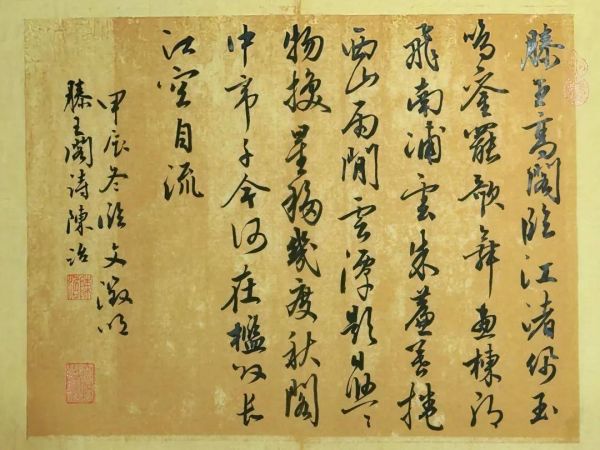 滕王高閣臨江渚佩玉
鳴鑾罷歌舞畫棟朝
飛南浦雲朱簾暮捲
西山雨閒雲潭影日悠々
物換星移幾度秋閣
中帝子今何在檻外長
江空自流
甲辰冬臨文徵明
滕王閣詩陳